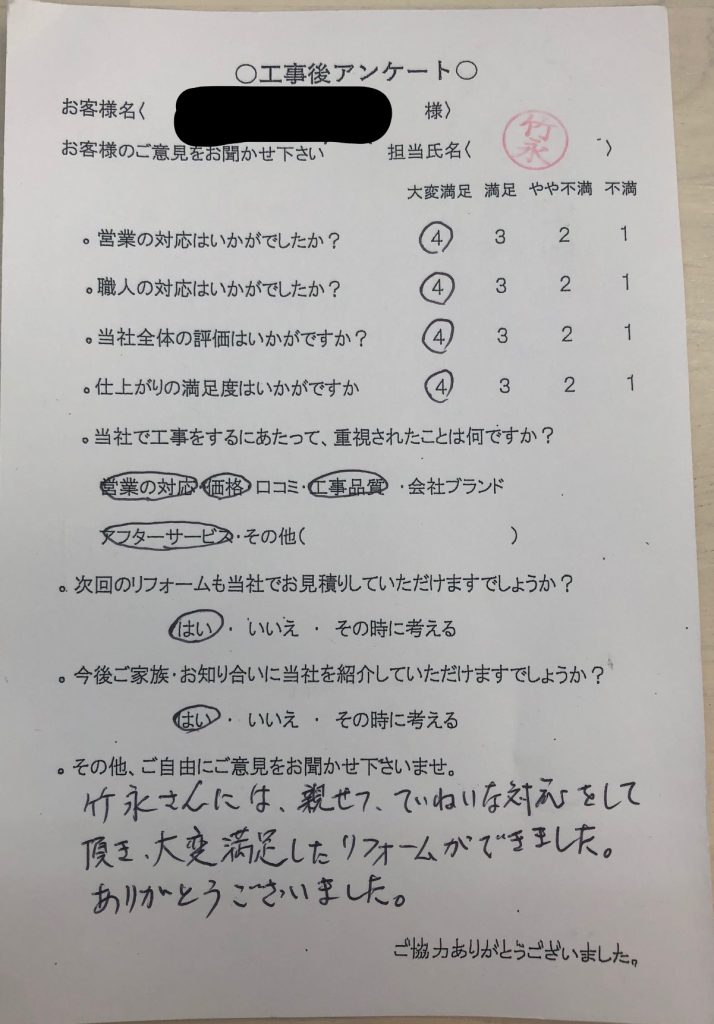 ○工事後アンケート○
お客様名〈 様〉
お客様のご意見をお聞かせ下さい 担当氏名〈 竹永 〉
大変満足 満足 やや不満 不満
。営業の対応はいかがでしたか？ 4 3 2 1
。職人の対応はいかがでしたか？ 4 3 2 1
。当社全体の評価はいかがですか？ 4 3 2 1
。仕上がりの満足度はいかがですか 4 3 2 1
。当社で工事をするにあたって、重視されたことは何ですか？
営業の対応・価格・口コミ・工事品質・会社ブランド
アフターサービス・その他( )
。次回のリフォームも当社でお見積りしていただけますでしょうか？
はい ・ いいえ ・ その時に考える
。今後ご家族・お知り合いに当社を紹介していただけますでしょうか？
はい ・ いいえ ・ その時に考える
。その他、ご自由にご意見をお聞かせ下さいませ。
竹永さんには、親せつ、ていねいな対応をして
頂き、大変満足したリフォームができました。
ありがとうございました。
ご協力ありがとうございました。